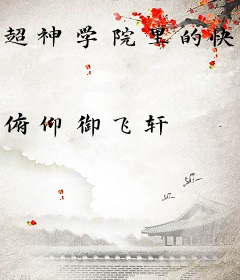 超神学院里的快
俯仰御飞轩